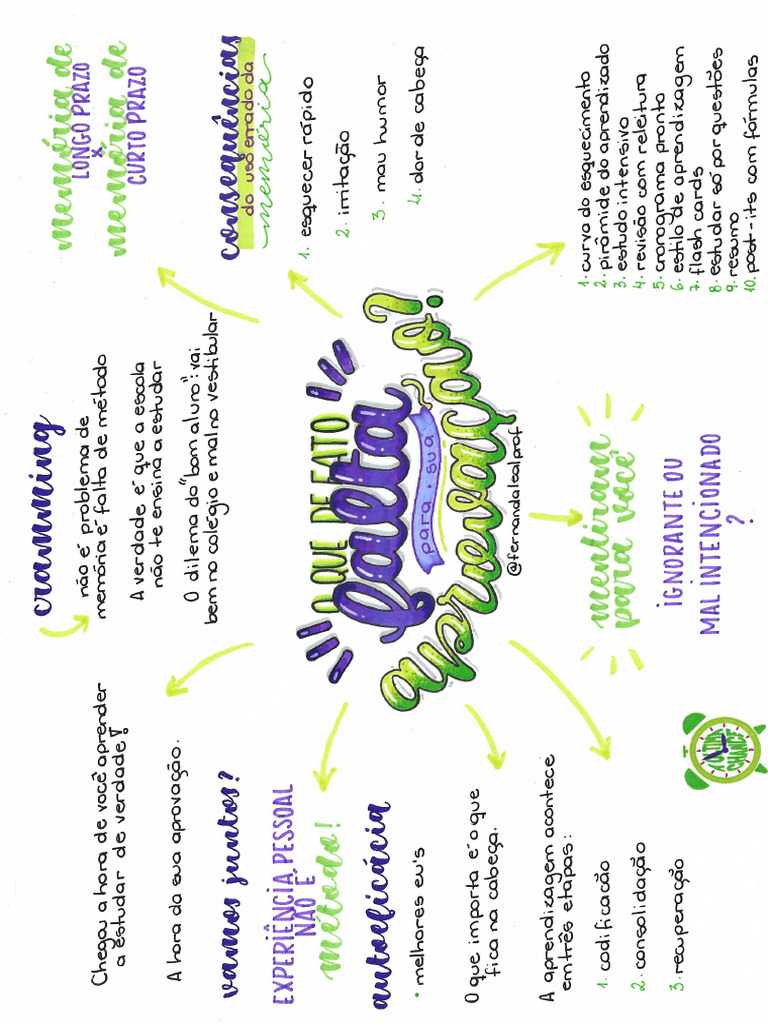 Chegou a hora de você aprender
a estudar de verdade!
A hora da sua aprovação.
vamos juntos?
EXPERIÊNCIA PESSOAL
NÃO É
método!
autoeficácia
• melhores eu's
O que importa é o que
fica na cabeça.
A aprendizagem acontece
em três etapas:
1. codificacão
2. consolidação
3. recuperação
cramming
não é problema de
memória é falta de método
A verdade é que a escola
não te ensina a estudar
O dilema do "bom aluno": vai
bem no colégio e mal no vestibular
O QUE DE FATO
falta
para • sua
aprovação?
@fernandalealprof
mentiram
para você
IGNORANTE OU
MAL INTENCIONADO
?
memória de
LONGO PRAZO
x
memória de
CURTO PRAZO
consequências
do uso errado da
memória
1. esquecer rápido
2. irritação
3. mau humor
4. dor de cabeça
1. curva do esquecimento
2. pirâmide do aprendizado
3. estudo intensivo
4. revisão com releitura
5. cronograma pronto
6. estilo de aprendizagem
7. flash cards
8. estudar só por questões
9. resumo
10. post-its com fórmulas
ÚLTIMA
CHANCE